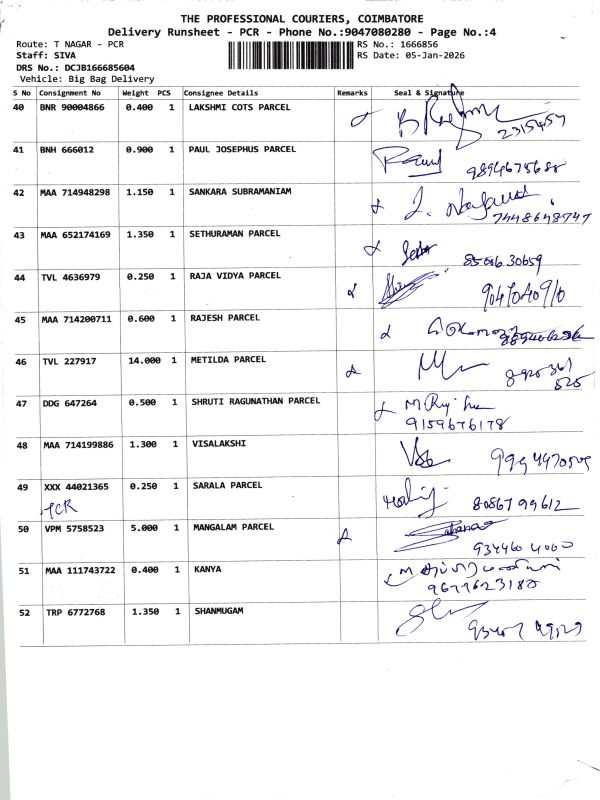 THE PROFESSIONAL COURIERS, COIMBATORE
Delivery Runsheet - PCR - Phone No.:9047080280 - Page No.:4
Route: T NAGAR - PCR RS No.: 1666856
Staff: SIVA RS Date: 05-Jan-2026
DRS No.: DCJB166685604
Vehicle: Big Bag Delivery
S No Consignment No Weight PCS Consignee Details Remarks Seal & Signature
40 BNR 90004866 0.400 1 LAKSHMI COTS PARCEL
2315457
41 BNH 666012 0.900 1 PAUL JOSEPHUS PARCEL Paul
9894675688
42 MAA 714948298 1.150 1 SANKARA SUBRAMANIAM
7448648747
43 MAA 652174169 1.350 1 SETHURAMAN PARCEL
44 TVL 4636979 0.250 1 RAJA VIDYA PARCEL
9047040910
45 MAA 714200711 0.600 1 RAJESH PARCEL
46 TVL 227917 14.000 1 METILDA PARCEL
8925361
525
47 DDG 647264 0.500 1 SHRUTI RAGUNATHAN PARCEL
9159676178
48 MAA 714199886 1.300 1 VISALAKSHI
49 XXX 44021365 0.250 1 SARALA PARCEL 8086799612
PCR
50 VPM 5758523 5.000 1 MANGALAM PARCEL
9344604000
51 MAA 111743722 0.400 1 KANYA
9677623180
52 TRP 6772768 1.350 1 SHANMUGAM